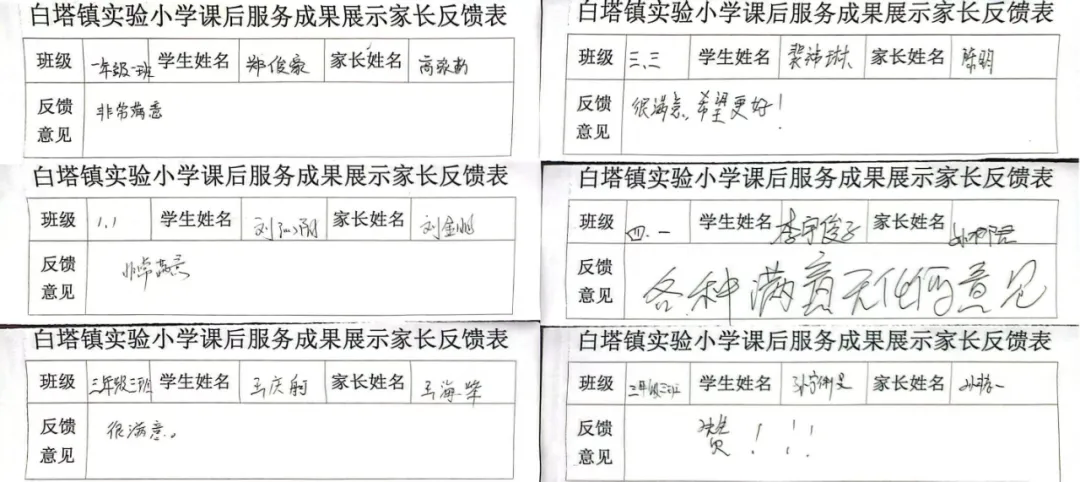 白塔镇实验小学课后服务成果展示家长反馈表
班级 一年级一班 学生姓名 郑俊豪 家长姓名
反馈意见 非常满意
白塔镇实验小学课后服务成果展示家长反馈表
班级 三.三 学生姓名 家长姓名 陈明
反馈意见 很满意,希望更好!
白塔镇实验小学课后服务成果展示家长反馈表
班级 1.1 学生姓名 家长姓名
反馈意见 非常满意
白塔镇实验小学课后服务成果展示家长反馈表
班级 四.一 学生姓名 家长姓名
反馈意见 各种满意无任何意见
白塔镇实验小学课后服务成果展示家长反馈表
班级 三年级三班 学生姓名 家长姓名
反馈意见 很满意。
白塔镇实验小学课后服务成果展示家长反馈表
班级 三年级三班 学生姓名 家长姓名
反馈意见 赞!!!